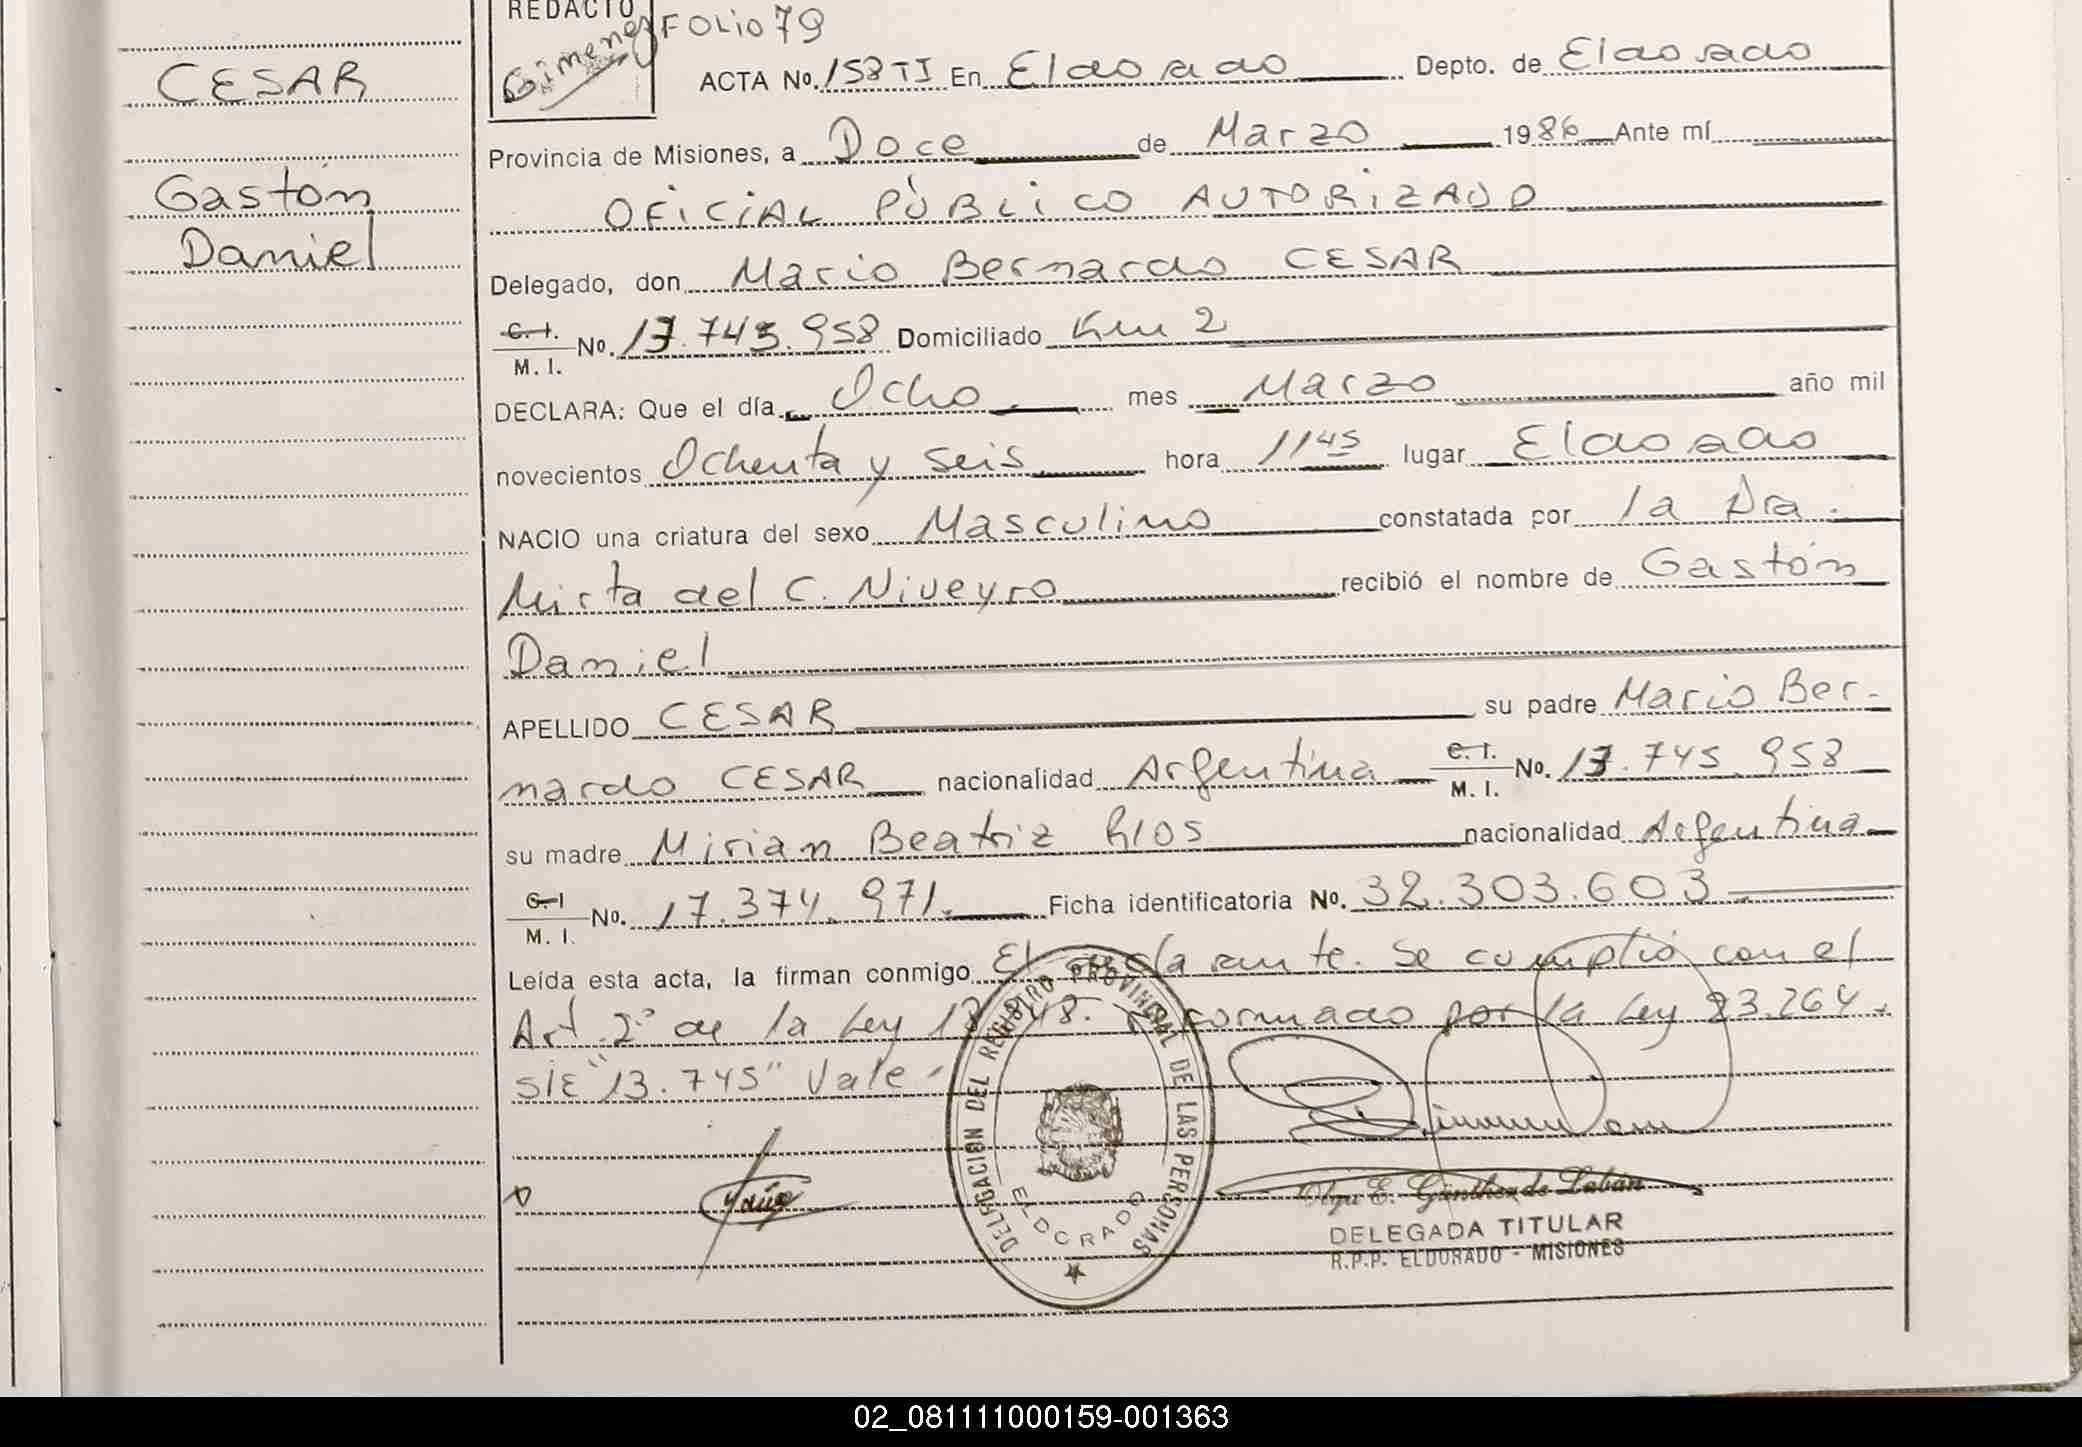 REDACTO
Gimenez
FOLIO 79
CESAR
Gastón
Daniel
ACTA No. 158 TI En Eldorado Depto. de Eldorado
Provincia de Misiones, a Doce de Marzo 1986 Ante mí
OFICIAL PÚBLICO AUTORIZADO
Delegado, don Mario Bernardo CESAR
C. I. M. I. No. 13.745.958 Domiciliado Km 2
DECLARA: Que el día Ocho mes Marzo año mil
novecientos Ochenta y seis hora 11 45 lugar Eldorado
NACIO una criatura del sexo Masculino constatada por la Dra.
Mirta del C. Niveyro recibió el nombre de Gastón
Daniel
APELLIDO CESAR su padre Mario Ber-
nardo CESAR nacionalidad Argentina C. I. M. I. No. 13.745.958
su madre Mirian Beatriz RIOS nacionalidad Argentina
C. I M. I. No. 17.374.971. Ficha identificatoria No. 32.303.603
Leída esta acta, la firman conmigo El declarante. Se cumplió con el
Art. 2° de la Ley 18.248. Reformado por la Ley 23.264.
S/E "13.745" Vale -
DELEGACION DEL REGISTRO PROVINCIAL DE LAS PERSONAS
ELDORADO
Olga E. Günther de Labán
DELEGADA TITULAR
R.P.P. ELDORADO - MISIONES
02_081111000159-001363